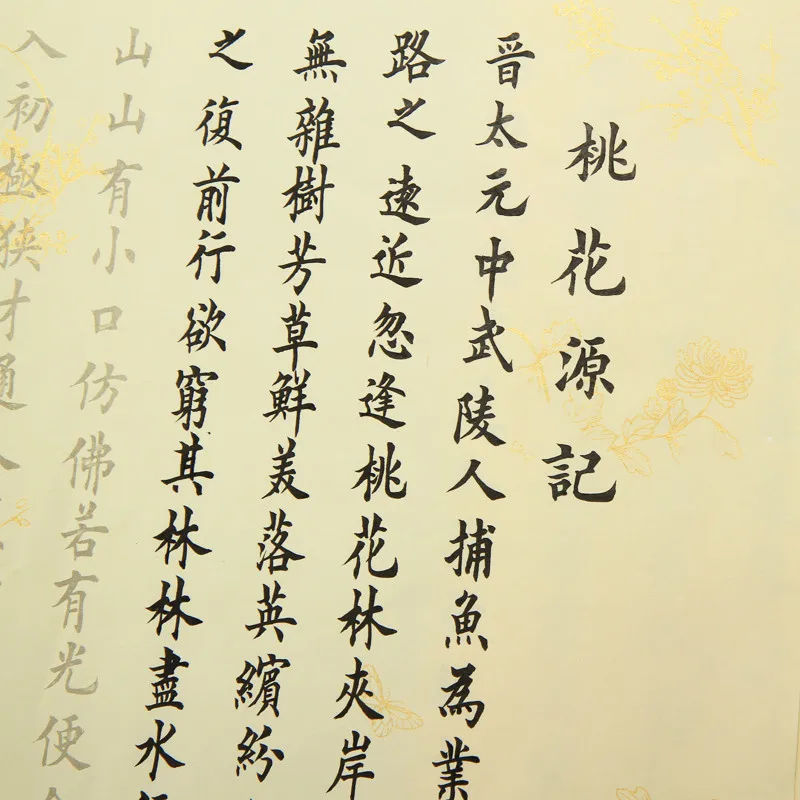 桃花源記
晋太元中武陵人捕魚為業
路之遠近忽逢桃花林夾岸
無雜樹芳草鮮美落英繽紛
之復前行欲窮其林林盡水
山山有小口仿佛若有光便
入初極狭才通人